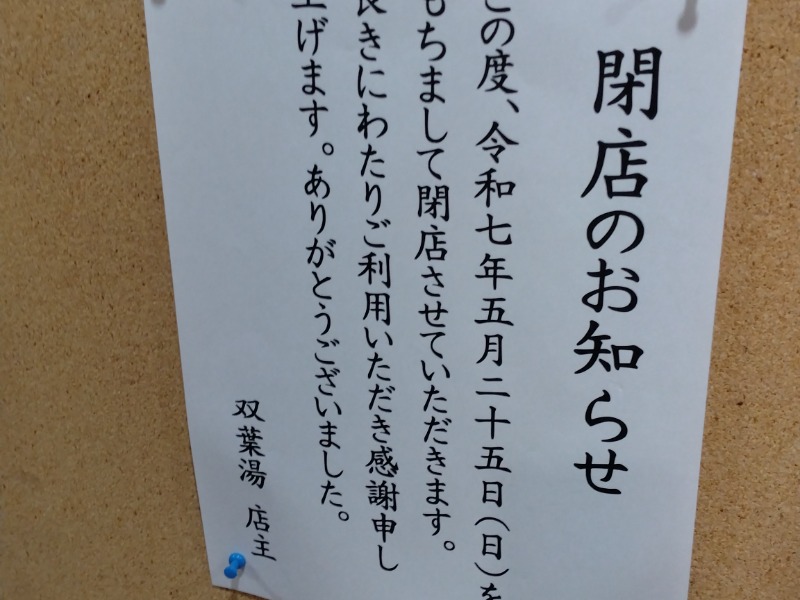 閉店のお知らせ
この度、令和七年五月二十五日(日)を
もちまして閉店させていただきます。
長きにわたりご利用いただき感謝申し
上げます。ありがとうございました。
双葉湯 店主